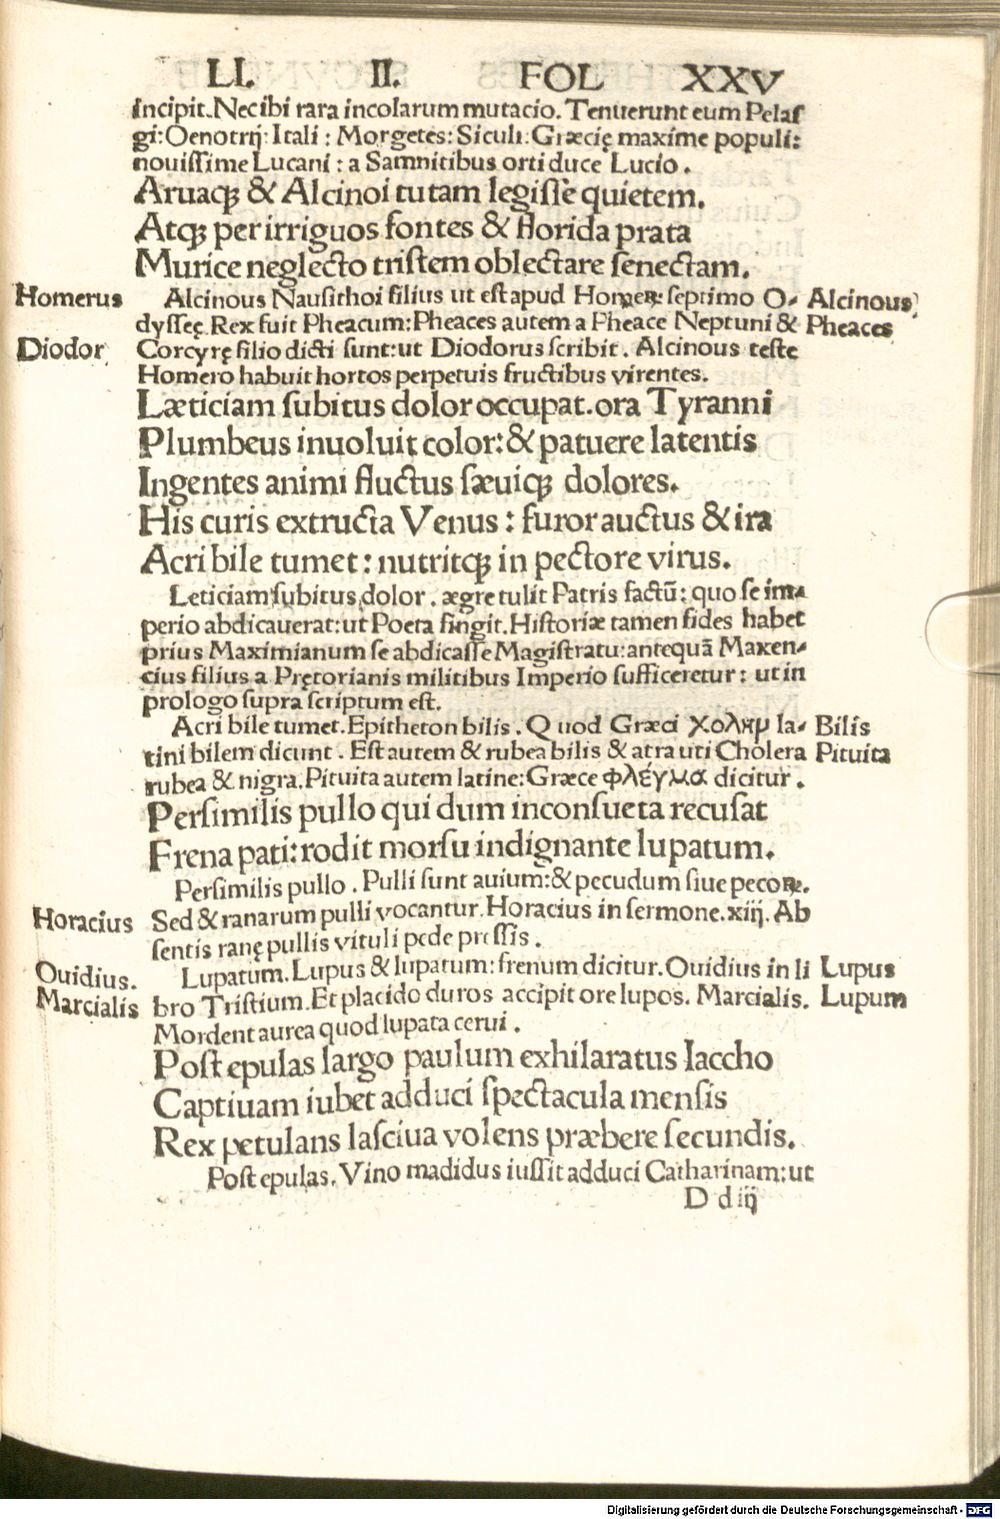 LI. II. FOL XXV
incipit. Nec ibi rara incolarum mutacio. Tenuerunt eum Pelas
gi: Oenotrij: Itali: Morgetes: Siculi. Græcię maxime populi:
nouissime Lucani: a Samnitibus orti duce Lucio.
Aruaqꝫ & Alcinoi tutam legisse quietem.
Atqꝫ per irriguos fontes & florida prata
Murice neglecto tristem oblectare senectam.
Homerus Alcinous Nausithoi filius ut est apud Homeꝝ: septimo O- Alcinous
dysseę. Rex fuit Pheacum: Pheaces autem a Pheace Neptuni & Pheaces
Diodor Corcyrę filio dicti sunt: ut Diodorus scribit. Alcinous teste
Homero habuit hortos perpetuis fructibus virentes.
Læticiam subitus dolor occupat. ora Tyranni
Plumbeus inuoluit color: & patuere latentis
Ingentes animi fluctus sæuiqꝫ dolores.
His curis extructa Venus: furor auctus & ira
Acri bile tumet: nutritqꝫ in pectore virus.
Leticiam subitus dolor. ægre tulit Patris factū: quo se im-
perio abdicauerat: ut Poeta fingit. Historiæ tamen fides habet
prius Maximianum se abdicasse Magistratu: antequā Maxen-
cius filius a Pretorianis militibus Imperio sufficeretur: ut in
prologo supra scriptum est.
Acri bile tumet. Epitheton bilis. Quod Græci χολημ la- Bilis
tini bilem dicunt. Est autem & rubea bilis & atra uti Cholera Pituita
rubea & nigra. Pituita autem latine: Græce φλέγμα dicitur.
Persimilis pullo qui dum inconsueta recusat
Frena pati: rodit morsu indignante lupatum.
Persimilis pullo. Pulli sunt auium: & pecudum siue pecoꝝ.
Horacius Sed & ranarum pulli vocantur. Horacius in sermone. xiij. Ab
sentis ranę pullis vituli pede pressis.
Ouidius. Lupatum. Lupus & lupatum: frenum dicitur. Ouidius in li Lupus
Marcialis bro Tristium. Et placido duros accipit ore lupos. Marcialis. Lupum
Mordent aurea quod lupata cerui.
Post epulas largo paulum exhilaratus Iaccho
Captiuam iubet adduci spectacula mensis
Rex petulans lasciua volens præbere secundis.
Post epulas. Vino madidus iussit adduci Catharinam: ut
D d iij
Digitalisierung gefördert durch die Deutsche Forschungsgemeinschaft - DFG